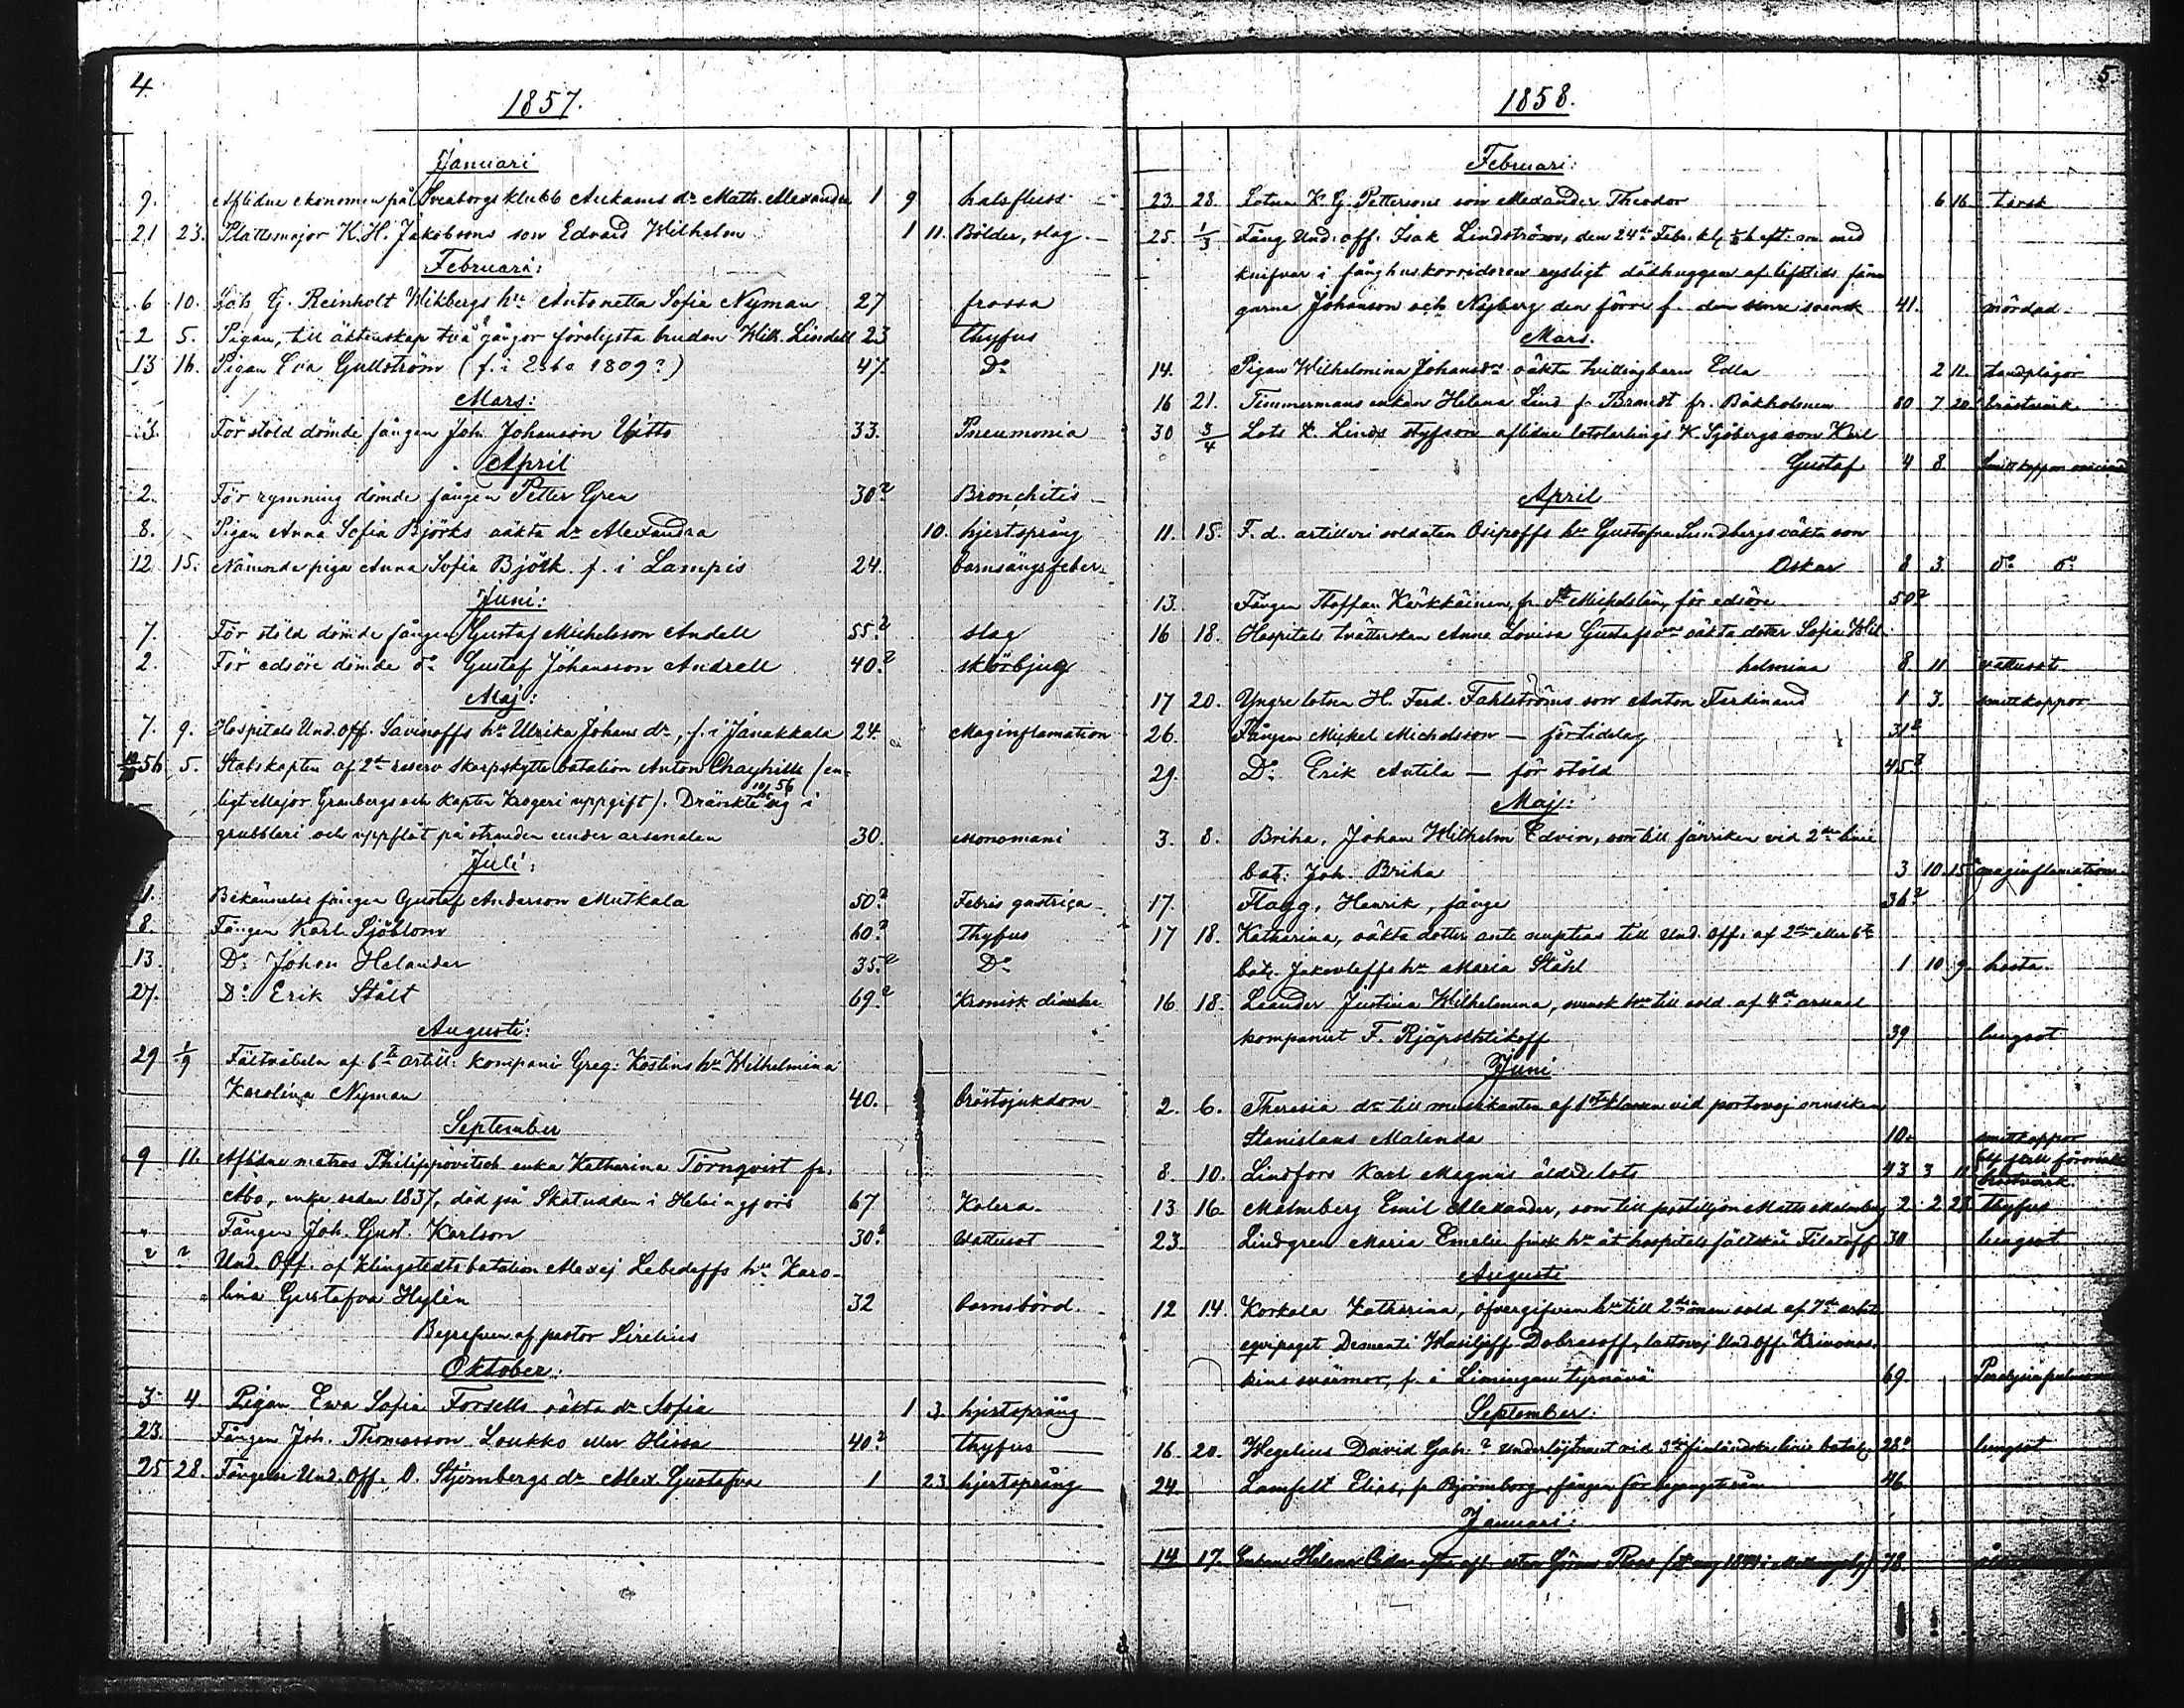 4.
1857.
Januari
9. Aflidne ekonomen på Sveaborgs klubb Aukams dr Math. Alexandra 1 9 halsfluss
21 23. Plattsmajor K. H. Jakobsons son Edvard Wilhelm 1 11. Bölder, slag.
Februari:
6 10. Lots G. Reinholt Wikbergs hu Antonetta Sofia Nyman 27 frossa
2 5. Pigan, till äktenskap två gånger förelysta bruden Wilh. Lindell 23 thyfus
13 16. Pigan Eva Gullström (f. i 1809?) 47. Do
Mars:
3. För stöld dömde fången Joh. Johanson Uitto 33. Pneumonia
April
2. För rymning dömde fången Petter Gren 30? Bronchitis
8. Pigan Anna Sofia Björks oäkta dr Alexandra 10. hjertsprång
12 15. Nämnda piga Anna Sofia Björk f. i Lampis 24. barnsängsfeber
Juni:
7. För stöld dömde fången Gustaf Michelsson Andell 55? slag
2. För edsöre dömde do Gustaf Johansson Andrell 40? skörbjugg
Maj:
7. 9. Hospitals Und. Off. Savinoffs hu Ulrika Johans dr, f. i Janakkala 24. Maginflamation
56 5. Stabskapten af 2a reserv skarpskytte batalion Anton Chayhille (en-
ligt Major Granbergs och Kapten Krogeri uppgift). Dränkte sig 56 i
grubbleri och uppflöt på stranden under arsenalen 30. monomani
Juli:
1. Bekännelse fången Gustaf Anderson Mutkala 50? Febris gastrica
8. Fången Karl Sjöblom 60? Thyfus
13. Do Johan Helander 35? Do
27. Do Erik Stålt 69? Kronisk diarrhe
Augusti:
29 1/9 Fältväbeln af 6te artill: kompani Greg: Kostins hu Wilhelmina
Karolina Nyman 40. bröstsjukdom
September
9 11. Aflidne matros Philippovitsch enka Katharina Törnqvist fr.
Åbo, enka sedan 1837, död på Skatudden i Helsingfors 67 Kolera.
" Fången Joh. Gust. Karlson 30? Wattusot
? ? Und. Off. af Klingstedts batalion Alexej Lebedeffs hu Karo-
lina Gustafva Hylén 32 barnsbörd.
Begrafven af pastor Sirelius
Oktober:
3 4. Pigan Ewa Sofia Forsells oäkta dr Sofia 1 3. hjertsprång
23. Fången Joh. Thomasson Loukko eller Hissa 40? thyfus
25 28. Fångelse Und. Off. O. Stjernbergs dr Alex Gustafva 1 23. hjertsprång
5.
1858.
Februari:
23 28. Lotsen K. G. Pettersons son Alexander Theodor 6 16 torsk
25 1/3 Fång Und. off. Isak Lindström, den 24de Febr. kl. eft: m. med
knifvar i fånghuskorridoren rysligt dödhuggen af lifstids fån
garne Johanson och Nyberg den förre f. den svensk 41. mördad.
Mars.
14. Pigan Wilhelmina Johansdrs oäkta tvillingbarn Edla 2 11. tandplågor
16 21. Timmermans enkan Helena Lind f. Brandt fr. Båkholmen 80 7 20 bröstvärk.
30 3/4 Lots L. Linds styfson aflidne lotslärlings K. Sjöbergs son Karl
Gustaf 4 8. Smittkoppor
April
11. 15. F. d. artilleri soldaten Osipoffs hu Gustafva Sundbergs oäkta son
Oskar 8 3. do do
13. Fången Staffan Kärkkäinen, fr. St Michels län, för edsöre 50?
16 18. Hospitals tvätterskan Anna Lovisa Gustafsdrs oäkta dotter Sofia Wil-
helmina 8. 11 vattusot
17 20. Yngre lotsen H. Ferd. Fahlströms son Anton Ferdinand 1 3. smittkoppor
26. Fången Mickel Michelsson — för tidelag 31?
29. Do Erik Antila — för stöld 45?
Maj:
3. 8. Briha, Johan Wilhelm Edvin, son till färriken vid 2dra linie
bat: Joh. Briha 3 10 15 maginflamation
17. Flagg, Henrik, fånge 36?
17 18. Katharina, oäkta dotter ante nuptias till Und. Off. af 2dra eller 6te
bat. Jakovleffs hu Maria Ståhl 1 10 9 hosta.
16 18. Leander Justina Wilhelmina, svensk hu till sold. af 4de arsenal
kompaniet F. Rjäpschtikoff 39 lungsot
Juni
2. 6. Theresia dr till musikanten af 1sta klassen vid portovoj musiken
Stanislaus Malenda 10. smittkoppor
8. 10. Lindfors Karl Magnus äldre lots 43 3 11 bröstvärk.
13 16. Malmberg Emil Alexander, son till postiljon Matts Malmberg 2 2 28 thyfus
23. Lindgren Maria Emelie finsk hu åt hospitals fältskär Filatoff 30 lungsot
Augusti
12 14. Korkala Katharina, öfvergifven hu till 2dra man sold af 7de arbet
eqvipaget Dementi Wasilieff Dobrasoff, lastovoj Und Off. Krivonos-
kins svärmor, f. i Limingan tyrnävä 69.
September:
16. 20. Hegelius David Gabr. ? Underlöjtnant vid 3dje finländska linie batal: 28? lungsot
24. Lamfelt Elias, fr Björneborg, fången för begånget rån 46.
Januari:
14 17. Enkan Helena 78.